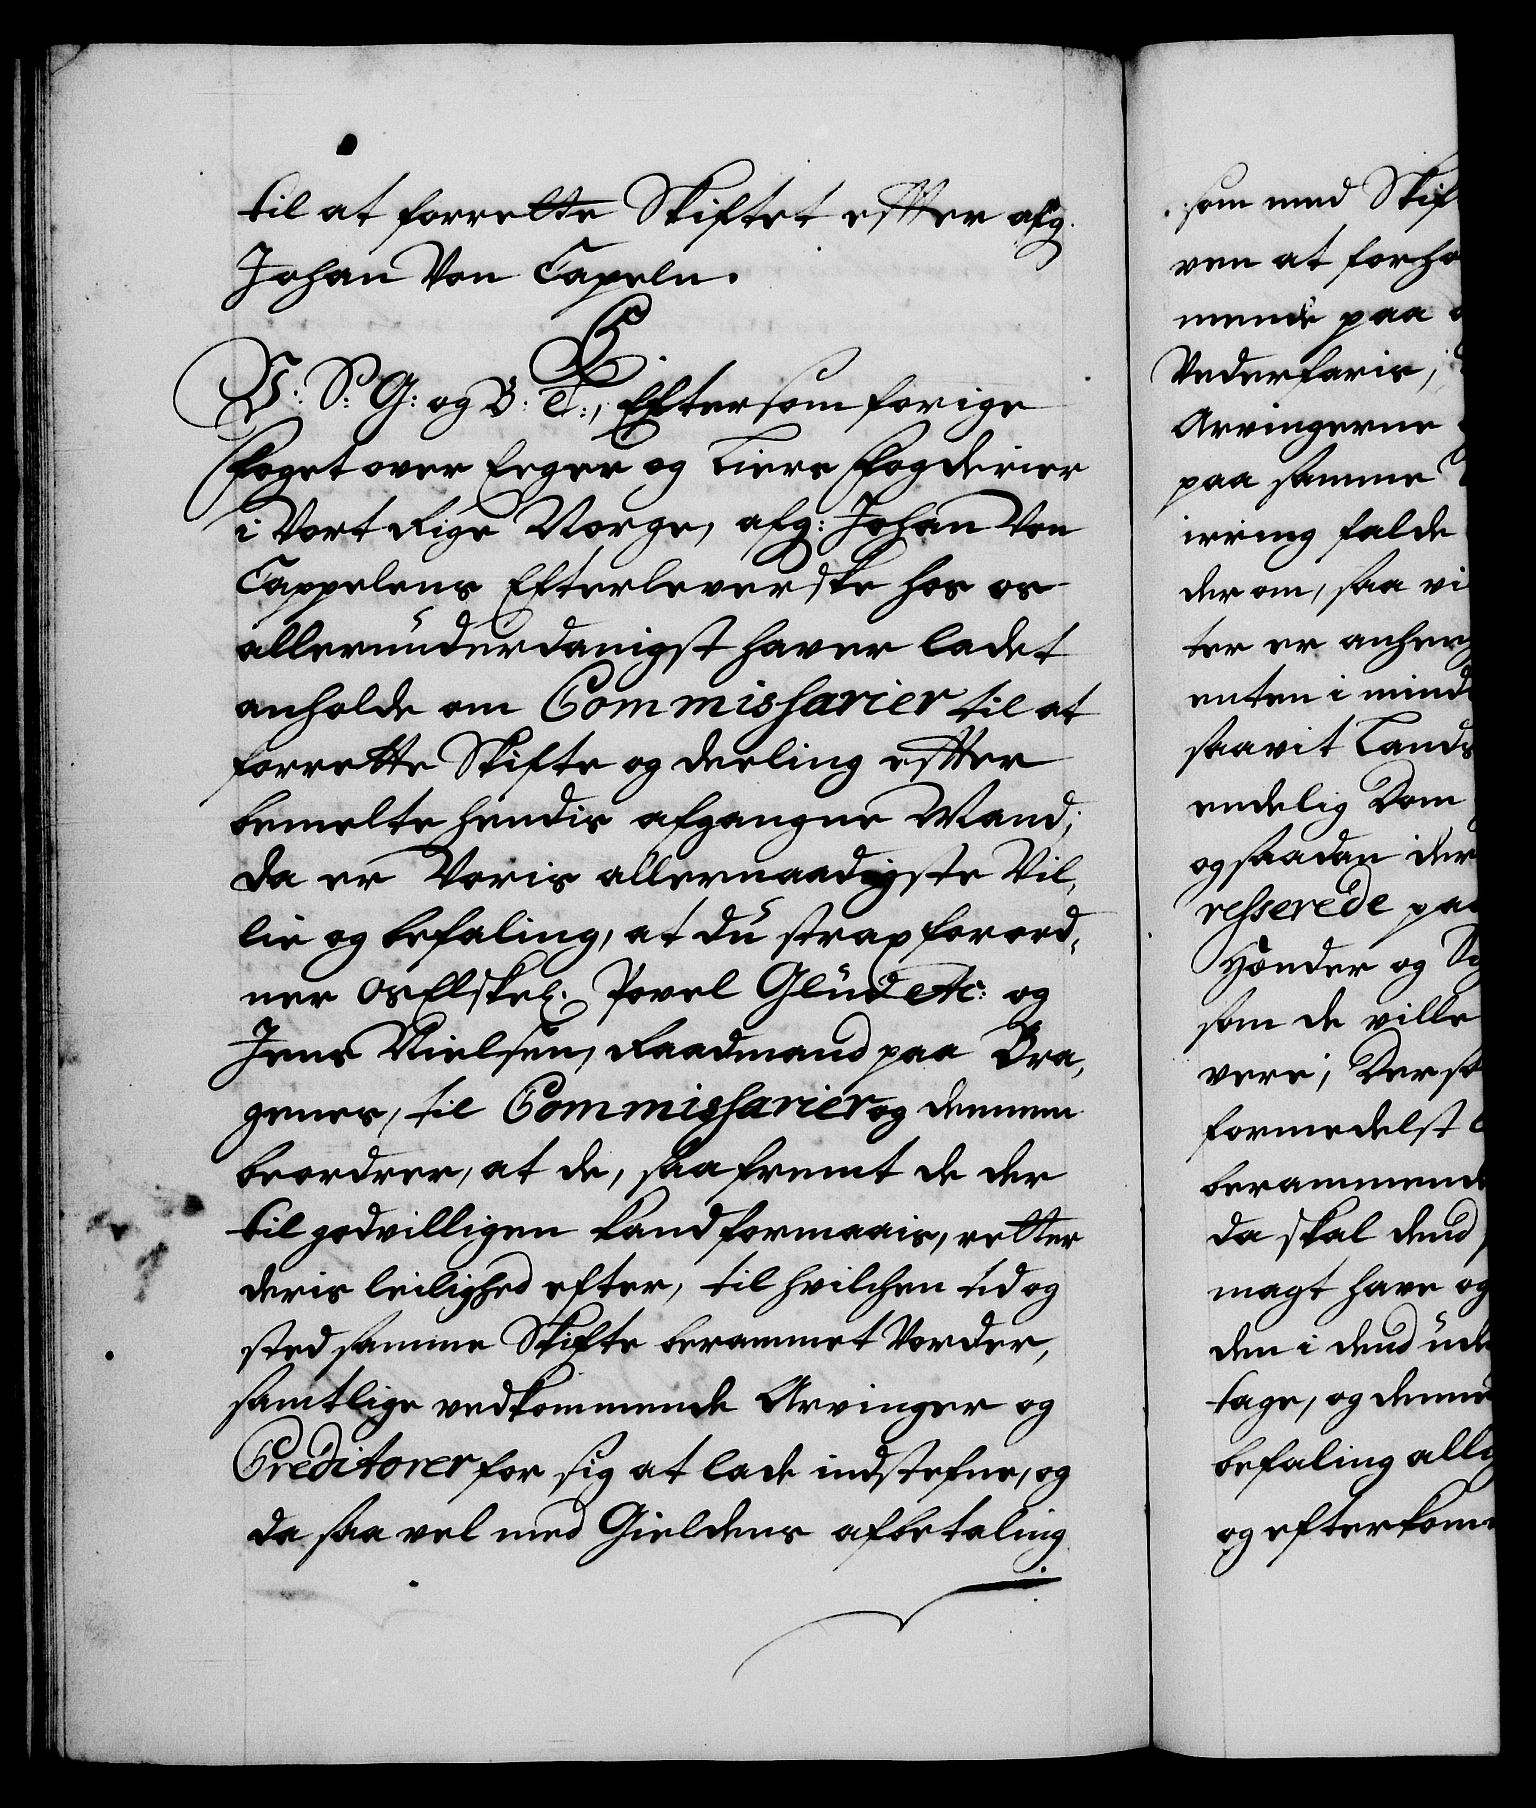 til at forrette Skiftet effter afg.
Johan Von Capeln.
C
V: S: G: og B: T:, Eftersom forige
foget over Eeger og Liers fogderier
i Vort Rige Norge, afg: Johan Von
Cappelens Efterleverske hos os
allerunderdanigst haver ladet
anholde om Commissarier til at
forrette Skifte og deeling effter
bemelte hendis afgangne Mand;
da er Voris allernaadigste Vil,
lie og befaling, at du strax forord,
ner os Elskel. Povel Glud etc: og
Jens Nielsen, Raadmand paa Bra,
genes, til Commissarier og dennem
beordrer, at de, saafremt de der
til godvilligen kand formaais, retter
deris leilighed efter, til hvilchen tid og
sted samme Skifte berammet Vorder,
samtlige vedkommende Arvinger og
Creditorer for sig at lade indstefne, og
da saa vel med Gieldens afbetaling
som med Skif
ven at forho
mende paa
Vederfaris,
Arvingerne
paa samme
irring falde
der om, saa vi
ter er anhen
enten i mind
saavit Lands
endelig Dom
og saadan der
resserede paa
Hænder og
som de ville
vere, Ders
formedelst
berammend
da skal dend
magt have og
den i dend ude
tage, og denne
befaling alli
og efterkom